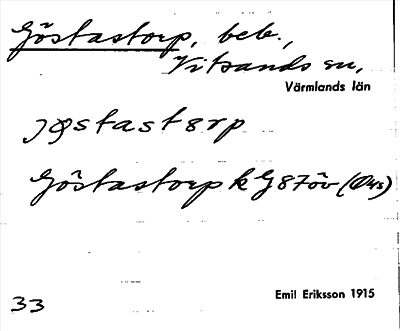 Göstastorp, beb.,
Vitsands sn,
Värmlands län
jøstastørp
Göstastorp k G87öv (Øus)
Emil Eriksson 1915
33